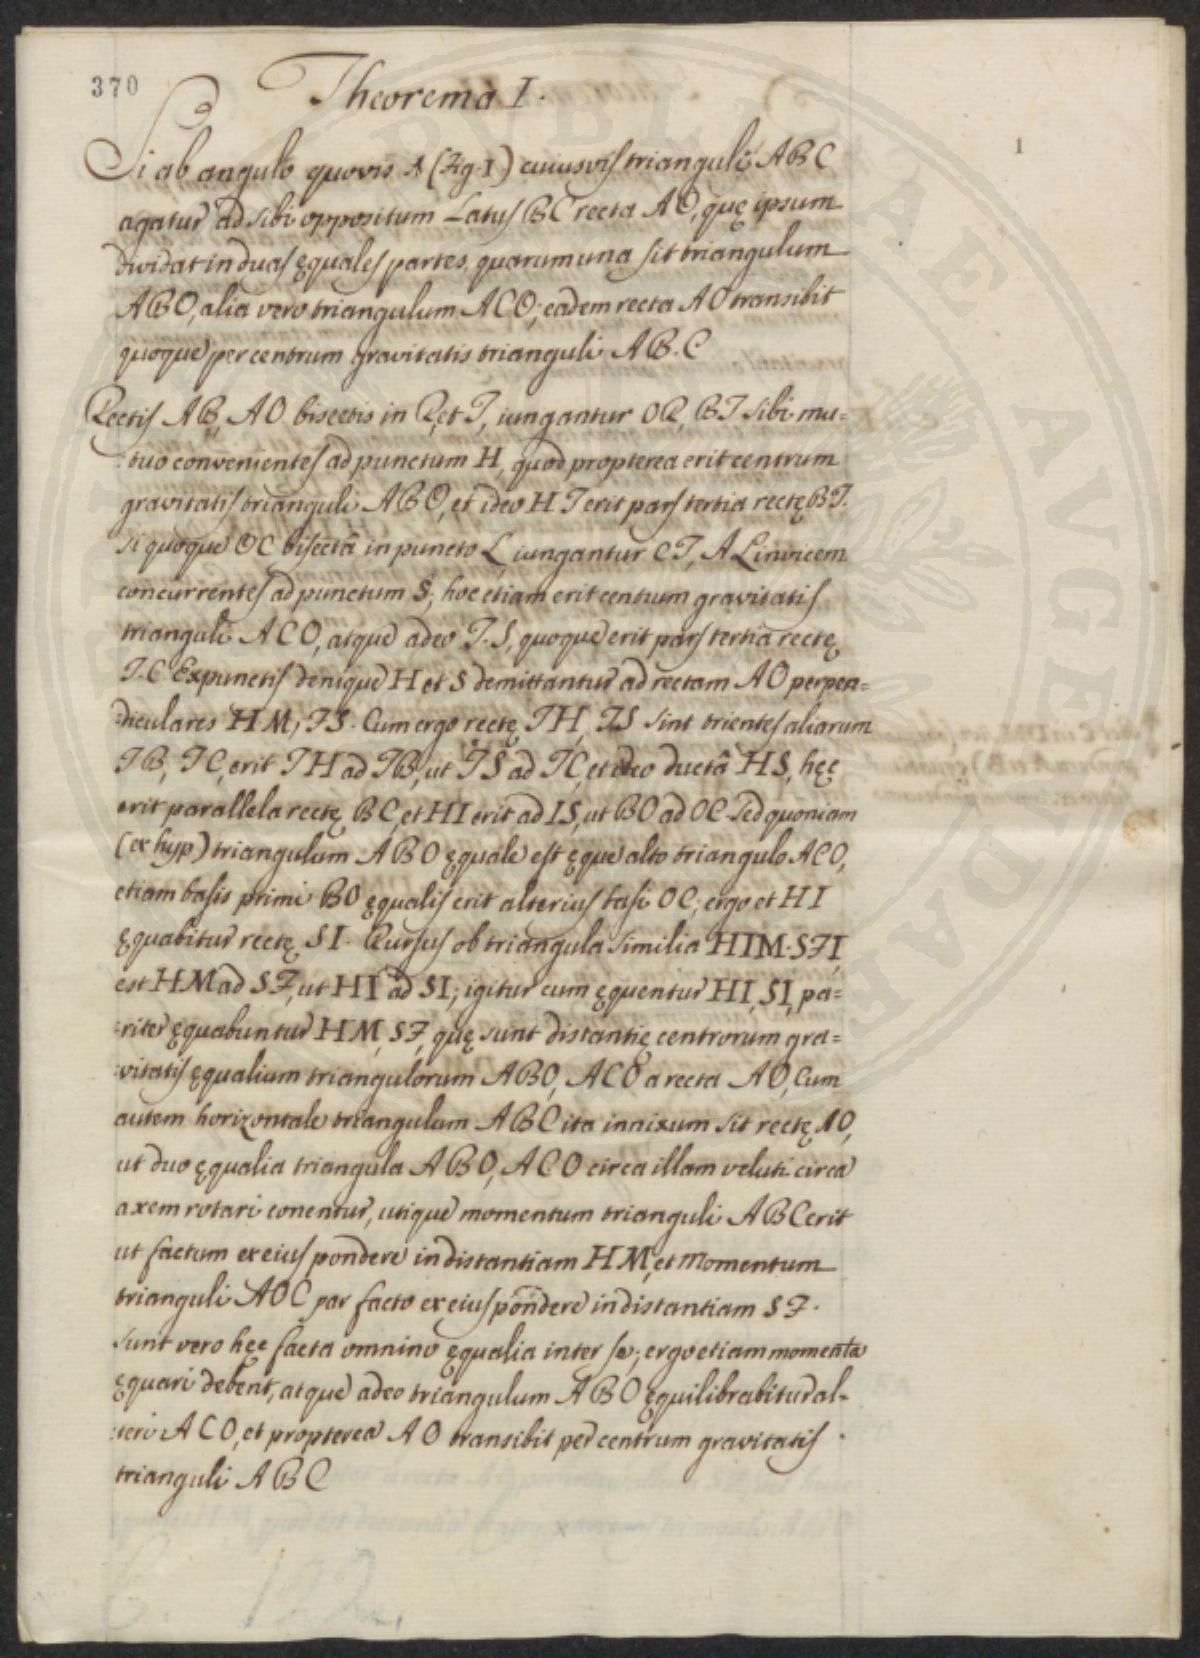 370
Theorema I.
1
Si ab angulo quovis A (Fig. I) cuiusvis trianguli ABC
agatur ad sibi oppositum Latus BC recta AO, quę ipsum
dividat in duas ęquales partes, quarum una sit triangulum
ABO, alia vero triangulum ACO; eadem recta AO transibit
quoque per centrum gravitatis trianguli AB.C
Rectis AB, AO bisectis in R, et T, iungantur OR, BT sibi mu=
:tuo convenientes ad punctum H, quod propterea erit centrum
gravitatis trianguli ABO, et ideo HT erit pars tertia rectę BT.
Si quoque OC bisectâ in puncto L, iungantur CT, AL invicem
concurrentes ad punctum S; hoc etiam erit centrum gravitatis
trianguli ACO, atque adeo T.S, quoque erit pars tertia rectę
T.C Ex punctis denique H et S demittantur ad rectam AO perpen=
:diculares HM, FS. Cum ergo rectę TH, TS sint trientes aliarum
TB, TC, erit TH ad TB, ut TS ad TC, et ideo ductâ HS, hęc
erit parallela rectę BC, et HI erit ad IS, ut BO ad OC. Sed quoniam
(ex hyp) triangulum ABO ęquale est ęque alto triangulo ACO,
etiam basis primi BO ęqualis erit alterius basi OC; ergo et HI
ęquabitur rectę SI. Rursus ob triangula similia HIM. SFI,
est HM ad SF, ut HI ad SI; igitur cum ęquentur HI, SI, pa=
:riter ęquabuntur HM, SF, quę sunt distantię centrorum gra=
:vitatis ęqualium triangulorum ABO, ACO a recta AO, Cum
autem horizontale triangulum ABC ita innixum sit rectę AO,
ut duo ęqualia triangula ABO, ACO circa illam veluti circa
axem rotari conentur, utique momentum trianguli ABC erit
ut factum ex eius pondere in distantiam HM, et Momentum
trianguli AOC par facto ex eius pondere in distantiam SF.
Sunt vero hęc facta omnino ęqualia inter se; ergo etiam momenta
ęquari debent, atque adeo triangulum ABO ęquilibrabitur al-
:teri ACO, et propterea AO transibit per centrum gravitatis
trianguli ABC